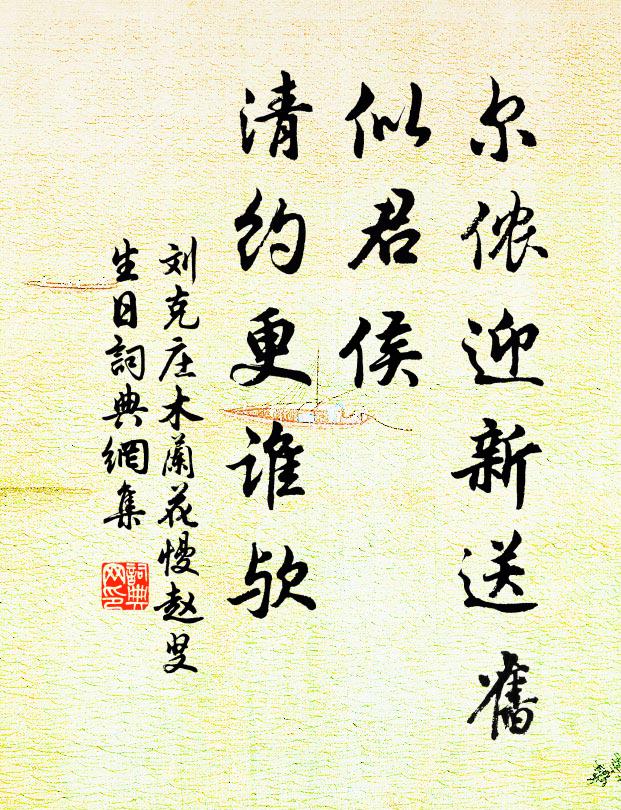 尔侬迎新送舊
似君侯
清约更谁欤
刘克庄木蘭花慢赵叟
生日詞典網集
詞典
网印